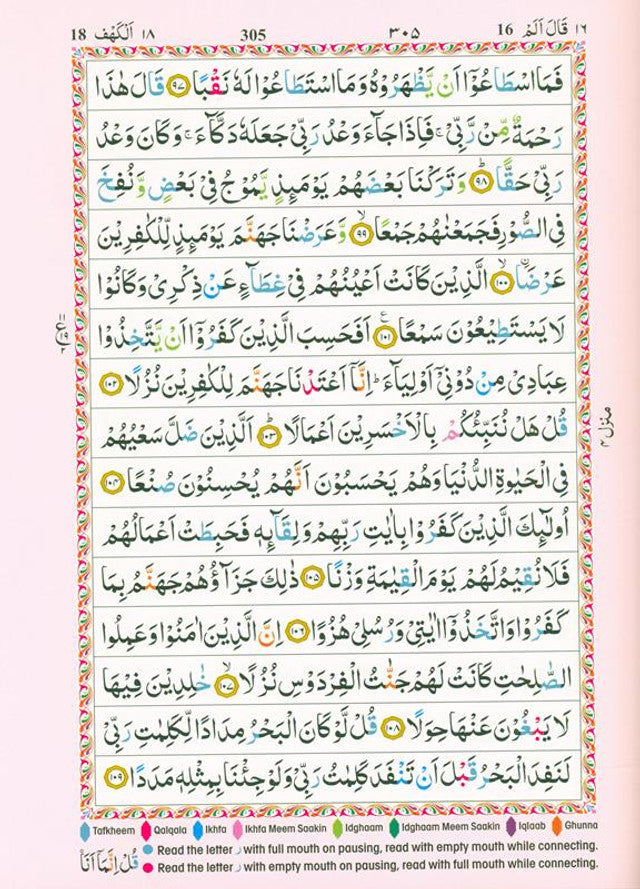 18 اَلْكَهْف ١٨ 305 ٣٠٥ 16 قَالَ اَلَمْ ١٦
فَمَا اسْطَاعُوْۤا اَنْ يَّظْهَرُوْهُ وَمَا اسْتَطَاعُوْا لَهٗ نَقْبًا ۝٩٧ قَالَ هٰذَا
رَحْمَةٌ مِّنْ رَّبِّيْ ۚ فَاِذَا جَآءَ وَعْدُ رَبِّيْ جَعَلَهٗ دَكَّآءَ ۚ وَكَانَ وَعْدُ
رَبِّيْ حَقًّا ؕ۝٩٨ وَتَرَكْنَا بَعْضَهُمْ يَوْمَىِٕذٍ يَّمُوْجُ فِيْ بَعْضٍ وَّنُفِخَ
فِي الصُّوْرِ فَجَمَعْنٰهُمْ جَمْعًا ۙ۝٩٩ وَّعَرَضْنَا جَهَنَّمَ يَوْمَىِٕذٍ لِّلْكٰفِرِيْنَ
عَرْضًا ۙ۝١٠٠ الَّذِيْنَ كَانَتْ اَعْيُنُهُمْ فِيْ غِطَآءٍ عَنْ ذِكْرِيْ وَكَانُوْا
لَا يَسْتَطِيْعُوْنَ سَمْعًا ۝١٠١ اَفَحَسِبَ الَّذِيْنَ كَفَرُوْۤا اَنْ يَّتَّخِذُوْا
عِبَادِيْ مِنْ دُوْنِيْۤ اَوْلِيَآءَ ؕ اِنَّاۤ اَعْتَدْنَا جَهَنَّمَ لِلْكٰفِرِيْنَ نُزُلًا ۝١٠٢
قُلْ هَلْ نُنَبِّئُكُمْ بِالْاَخْسَرِيْنَ اَعْمَالًا ؕ۝١٠٣ اَلَّذِيْنَ ضَلَّ سَعْيُهُمْ
فِي الْحَيٰوةِ الدُّنْيَا وَهُمْ يَحْسَبُوْنَ اَنَّهُمْ يُحْسِنُوْنَ صُنْعًا ۝١٠٤
اُولٰٓىِٕكَ الَّذِيْنَ كَفَرُوْا بِاٰيٰتِ رَبِّهِمْ وَلِقَآىِٕهٖ فَحَبِطَتْ اَعْمَالُهُمْ
فَلَا نُقِيْمُ لَهُمْ يَوْمَ الْقِيٰمَةِ وَزْنًا ۝١٠٥ ذٰلِكَ جَزَآؤُهُمْ جَهَنَّمُ بِمَا
كَفَرُوْا وَاتَّخَذُوْۤا اٰيٰتِيْ وَرُسُلِيْ هُزُوًا ۝١٠٦ اِنَّ الَّذِيْنَ اٰمَنُوْا وَعَمِلُوا
الصّٰلِحٰتِ كَانَتْ لَهُمْ جَنّٰتُ الْفِرْدَوْسِ نُزُلًا ۙ۝١٠٧ خٰلِدِيْنَ فِيْهَا
لَا يَبْغُوْنَ عَنْهَا حِوَلًا ۝١٠٨ قُلْ لَّوْ كَانَ الْبَحْرُ مِدَادًا لِّكَلِمٰتِ رَبِّيْ
لَنَفِدَ الْبَحْرُ قَبْلَ اَنْ تَنْفَدَ كَلِمٰتُ رَبِّيْ وَلَوْ جِئْنَا بِمِثْلِهٖ مَدَدًا ۝١٠٩
منزل ٤
Tafkheem Qalqala Ikhfa Ikhfa Meem Saakin Idghaam Idghaam Meem Saakin Iqlaab Ghunna
Read the letter ر with full mouth on pausing, read with empty mouth while connecting.
Read the letter ر with empty mouth on pausing, read with full mouth while connecting.
قُلْ اِنَّمَاۤ اَنَا